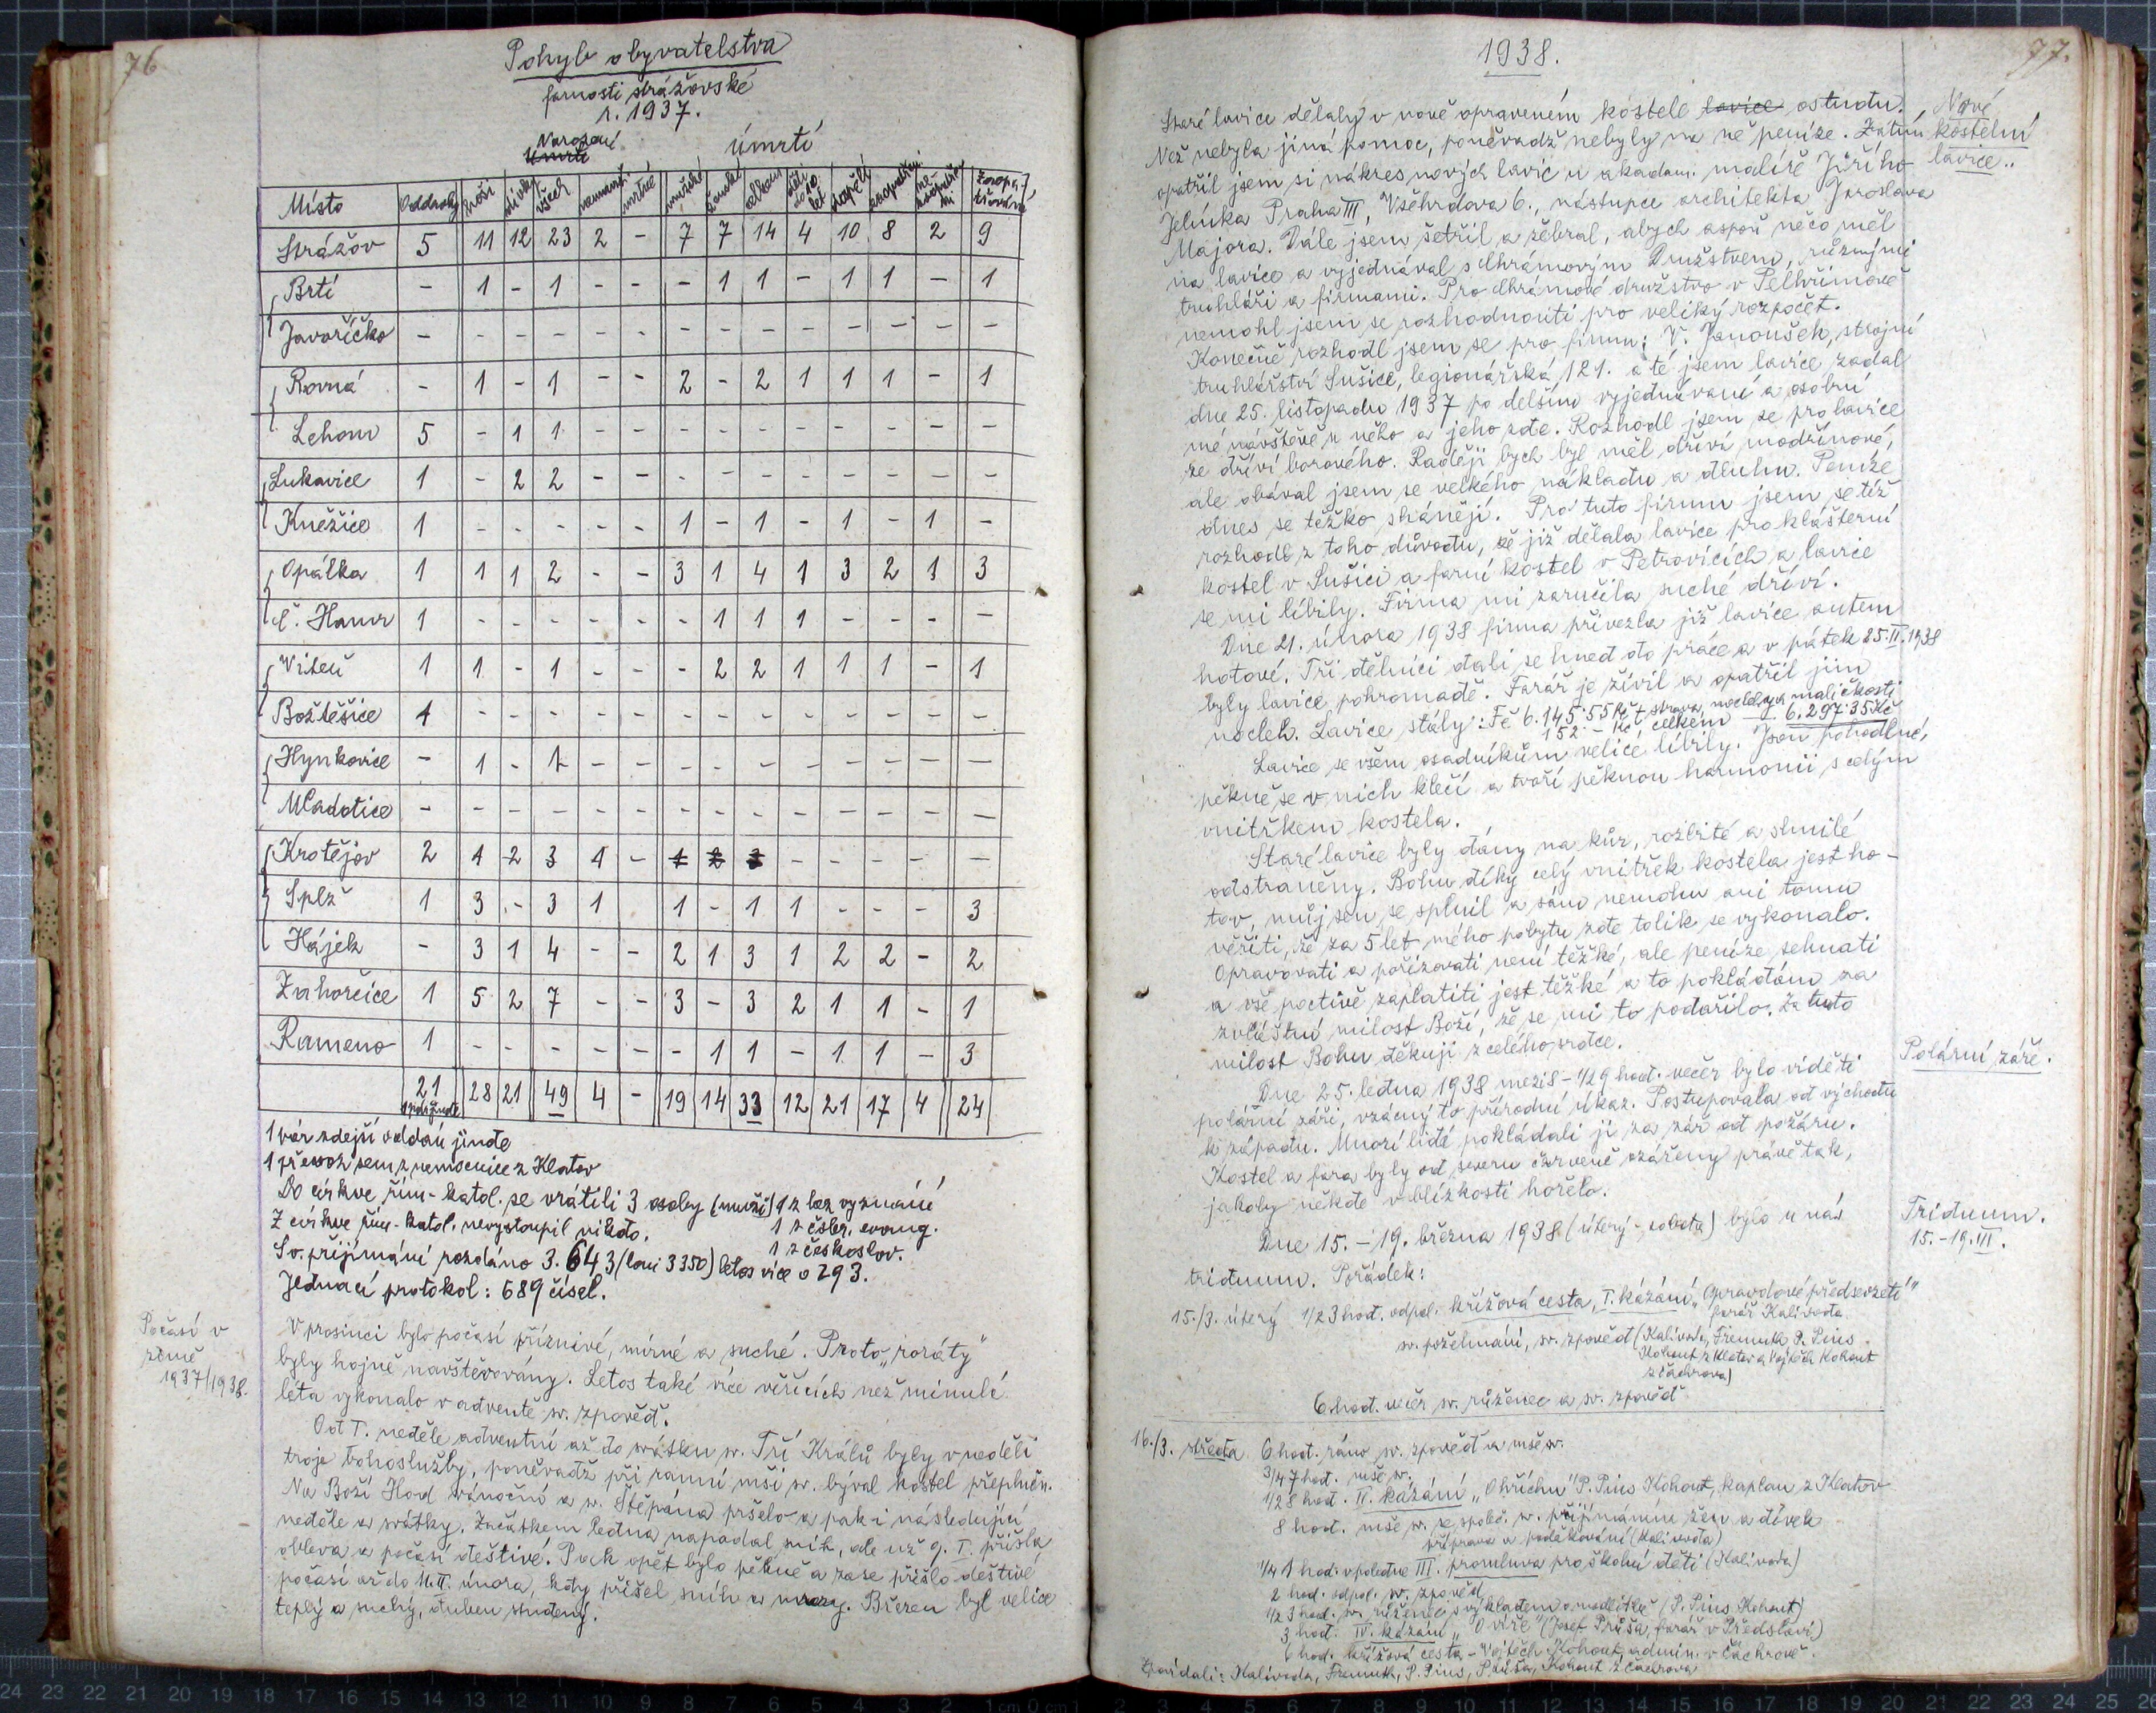 76
Pohyb obyvatelstva
farnosti strážovské
r. 1937.
Narození
Úmrtí
úmrtí
Místo Oddavky hoši dívky všech nemanž. mrtvé mužské ženské celkem děti do 10 let dospělí zaopatření nezaopatření Zaopatřování
Strážov 5 11 12 23 2 - 7 7 14 4 10 8 2 9
Brtí - 1 - 1 - - - 1 1 - 1 1 - 1
Javoříčko - - - - - - - - - - - - - -
Rovná - 1 - 1 - - 2 - 2 1 1 1 - 1
Lehom 5 - 1 1 - - - - - - - - - -
Lukavice 1 - 2 2 - - - - - - - - - -
Kněžice 1 - - - - - 1 - 1 - 1 - 1 -
Opálka 1 1 1 2 - - 3 1 4 1 3 2 1 3
č. Hamr 1 - - - - - - 1 1 1 - - - -
Viteň 1 1 - 1 - - - 2 2 1 1 1 - 1
Božtěšice 1 - - - - - - - - - - - - -
Hynkovice - 1 - 1 - - - - - - - - - -
Mladotice - - - - - - - - - - - - - -
Krotějov 2 1 2 3 1 - 1 2 3 - - - - -
Splž 1 3 - 3 1 1 - 1 1 - - - 3
Hájek - 3 1 4 - - 2 1 3 1 2 2 - 2
Zahorčice 1 5 2 7 - - 3 - 3 2 1 1 - 1
Rameno 1 - - - - - - 1 1 - 1 1 - 3
21 28 21 49 4 - 19 14 33 12 21 17 4 24
1 pár jinde
1 pár zdejší oddán jinde
1 převoz sem z nemocnice z Klatov
Do církve řím-katol. se vrátili 3 osoby (muži) 1 z bez vyznání
Z církve řím-katol. nevystoupil nikdo. 1 z česbr. evang.
1 z českoslov.
Sv. přijímání rozdáno 3.643 (loni 3350) letos více o 293.
Jednací protokol: 689 čísel.
Počasí v
zimě
1937/1938.
V prosinci bylo počasí příznivé, mírné a suché. Proto „roráty"
byly hojně navštěvovány. Letos také více věřících než minulé
léta vykonalo v adventě sv. zpověď.
Od I. neděle adventní až do svátku sv. Tří Králů byly v neděli
troje bohoslužby, poněvadž při ranní mši sv. býval kostel přeplněn.
Na Boží Hod vánoční a sv. Štěpána pršelo a pak i následující
neděle a svátky. Začátkem ledna napadal sníh, ale už 9. I. přišla
obleva a počasí deštivé. Pak opět bylo pěkně a zase přišlo deštivé
počasí až do 11. II. února, kdy přišel sníh a mrazy. Březen byl velice
teplý a suchý, duben studený.
77.
1938.
Nové
kostelní
lavice..
Staré lavice dělaly v nově opraveném kostele lavice ostudu.
Než nebyla jiná pomoc, poněvadž nebyly na ně peníze. Zatím
opatřil jsem si nákres nových lavic u akadem. malíře Jiřího
Jelínka Praha III, Všehrdova 6., nástupce architekta Jaroslava
Majora. Dále jsem šetřil a žebral, abych aspoň něco měl
na lavice a vyjednával s Chrámovým Družstvem, různými
truhláři a firmami. Pro Chrámové družstvo v Pelhřimově
nemohl jsem se rozhodnouti pro veliký rozpočet.
Konečně rozhodl jsem se pro firmu: V. Janoušek, strojní
truhlářství Sušice, legionářská 121. a té jsem lavice zadal
dne 25. listopadu 1937 po delším vyjednávání a osobní
mé návštěvě u něho a jeho zde. Rozhodl jsem se pro lavice
ze dříví borového. Raději bych byl měl dříví modřínové,
ale obával jsem se velkého nákladu a dluhu. Peníze
dnes se těžko shánějí. Pro tuto firmu jsem se též
rozhodl z toho důvodu, že již dělala lavice pro klášterní
kostel v Sušici a farní kostel v Petrovicích a lavice
se mi líbily. Firma mi zaručila suché dříví.
Dne 21. února 1938 firma přivezla již lavice autem
hotové. Tři dělníci dali se hned do práce a v pátek 25. II. 1938
byly lavice pohromadě. Farář je živil a opatřil jim
nocleh. Lavice stály: Fě 6.145·55 Kč + strava, nocleh a maličkosti
152 - Kč celkem 6.297·35 Kč
Lavice se všem osadníkům velice líbily. Jsou pohodlné,
pěkně se v nich klečí a tvoří pěknou harmonii s celým
vnitřkem kostela.
Staré lavice byly dány na kůr, rozbité a shnilé
odstraněny. Bohu díky celý vnitřek kostela jest ho-
tov, můj sen se splnil a sám nemohu ani tomu
věřiti, že za 5 let mého pobytu zde tolik se vykonalo.
Opravovati a pořizovati není těžké, ale peníze sehnati
a vše poctivě zaplatiti jest těžké a to pokládám za
zvláštní milost Boží, že se mi to podařilo. Za tuto
milost Bohu děkuji z celého srdce.
Polární záře.
Dne 25. ledna 1938 mezi 8 - 1/2 9 hod. večer bylo viděti
polární záři, vzácný to přírodní úkaz. Postupovala od východu
k západu. Mnozí lidé pokládali ji za zář od požáru.
Kostel a fara byly od severu červeně ozářeny právě tak,
jakoby někde v blízkosti hořelo.
Triduum.
15.-19. III.
Dne 15. - 19. března 1938 (úterý - sobota) bylo u nás
triduum. Pořádek:
15./3. úterý 1/2 3 hod. odpol. křížová cesta, I. kázání „Opravdové předsevzetí"
farář Kalivoda
sv. požehnání, sv. zpověď (Kalivoda, Fremuth, P. Pius
Kohout z Klatov a Vojtěch Kohout
z Čachrova)
6 hod. večer sv. růženec a sv. zpověď
16./3. středa 6 hod. ráno sv. zpověď a mše sv.
3/4 7 hod. mše sv.
1/2 8 hod. II. kázání „O hříchu" P. Pius Kohout, kaplan z Klatov
8 hod. mše sv. se společ. sv. přijímáním žen a dívek
příprava a poděkování (Kalivoda)
1/4 1 hod. v poledne III. promluva pro školní děti (Kalivoda)
2 hod. odpol. sv. zpověď
1/2 3 hod. sv. růženec s výkladem o modlitbě (P. Pius Kohout)
3 hod. IV. kázání „O víře" (Josef Průša, farář v Předslavi)
6 hod. křížová cesta - Vojtěch Kohout, admin. v Čachrově.
Zpovídali: Kalivoda, Fremuth, P. Pius, Průša, Kohout z Čachrova